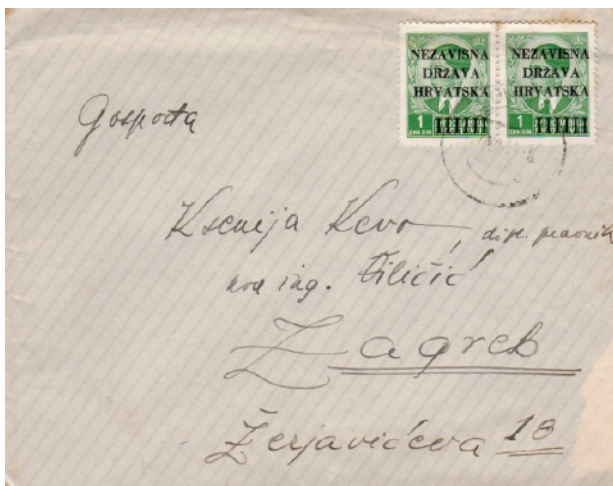 NEZAVISNA
DRŽAVA
HRVATSKA
1
NEZAVISNA
DRŽAVA
HRVATSKA
1
Gospođa
Ksenija Kevo, dipl. pravnik
kod ing. Filičić
Zagreb
Žerjavićeva 18